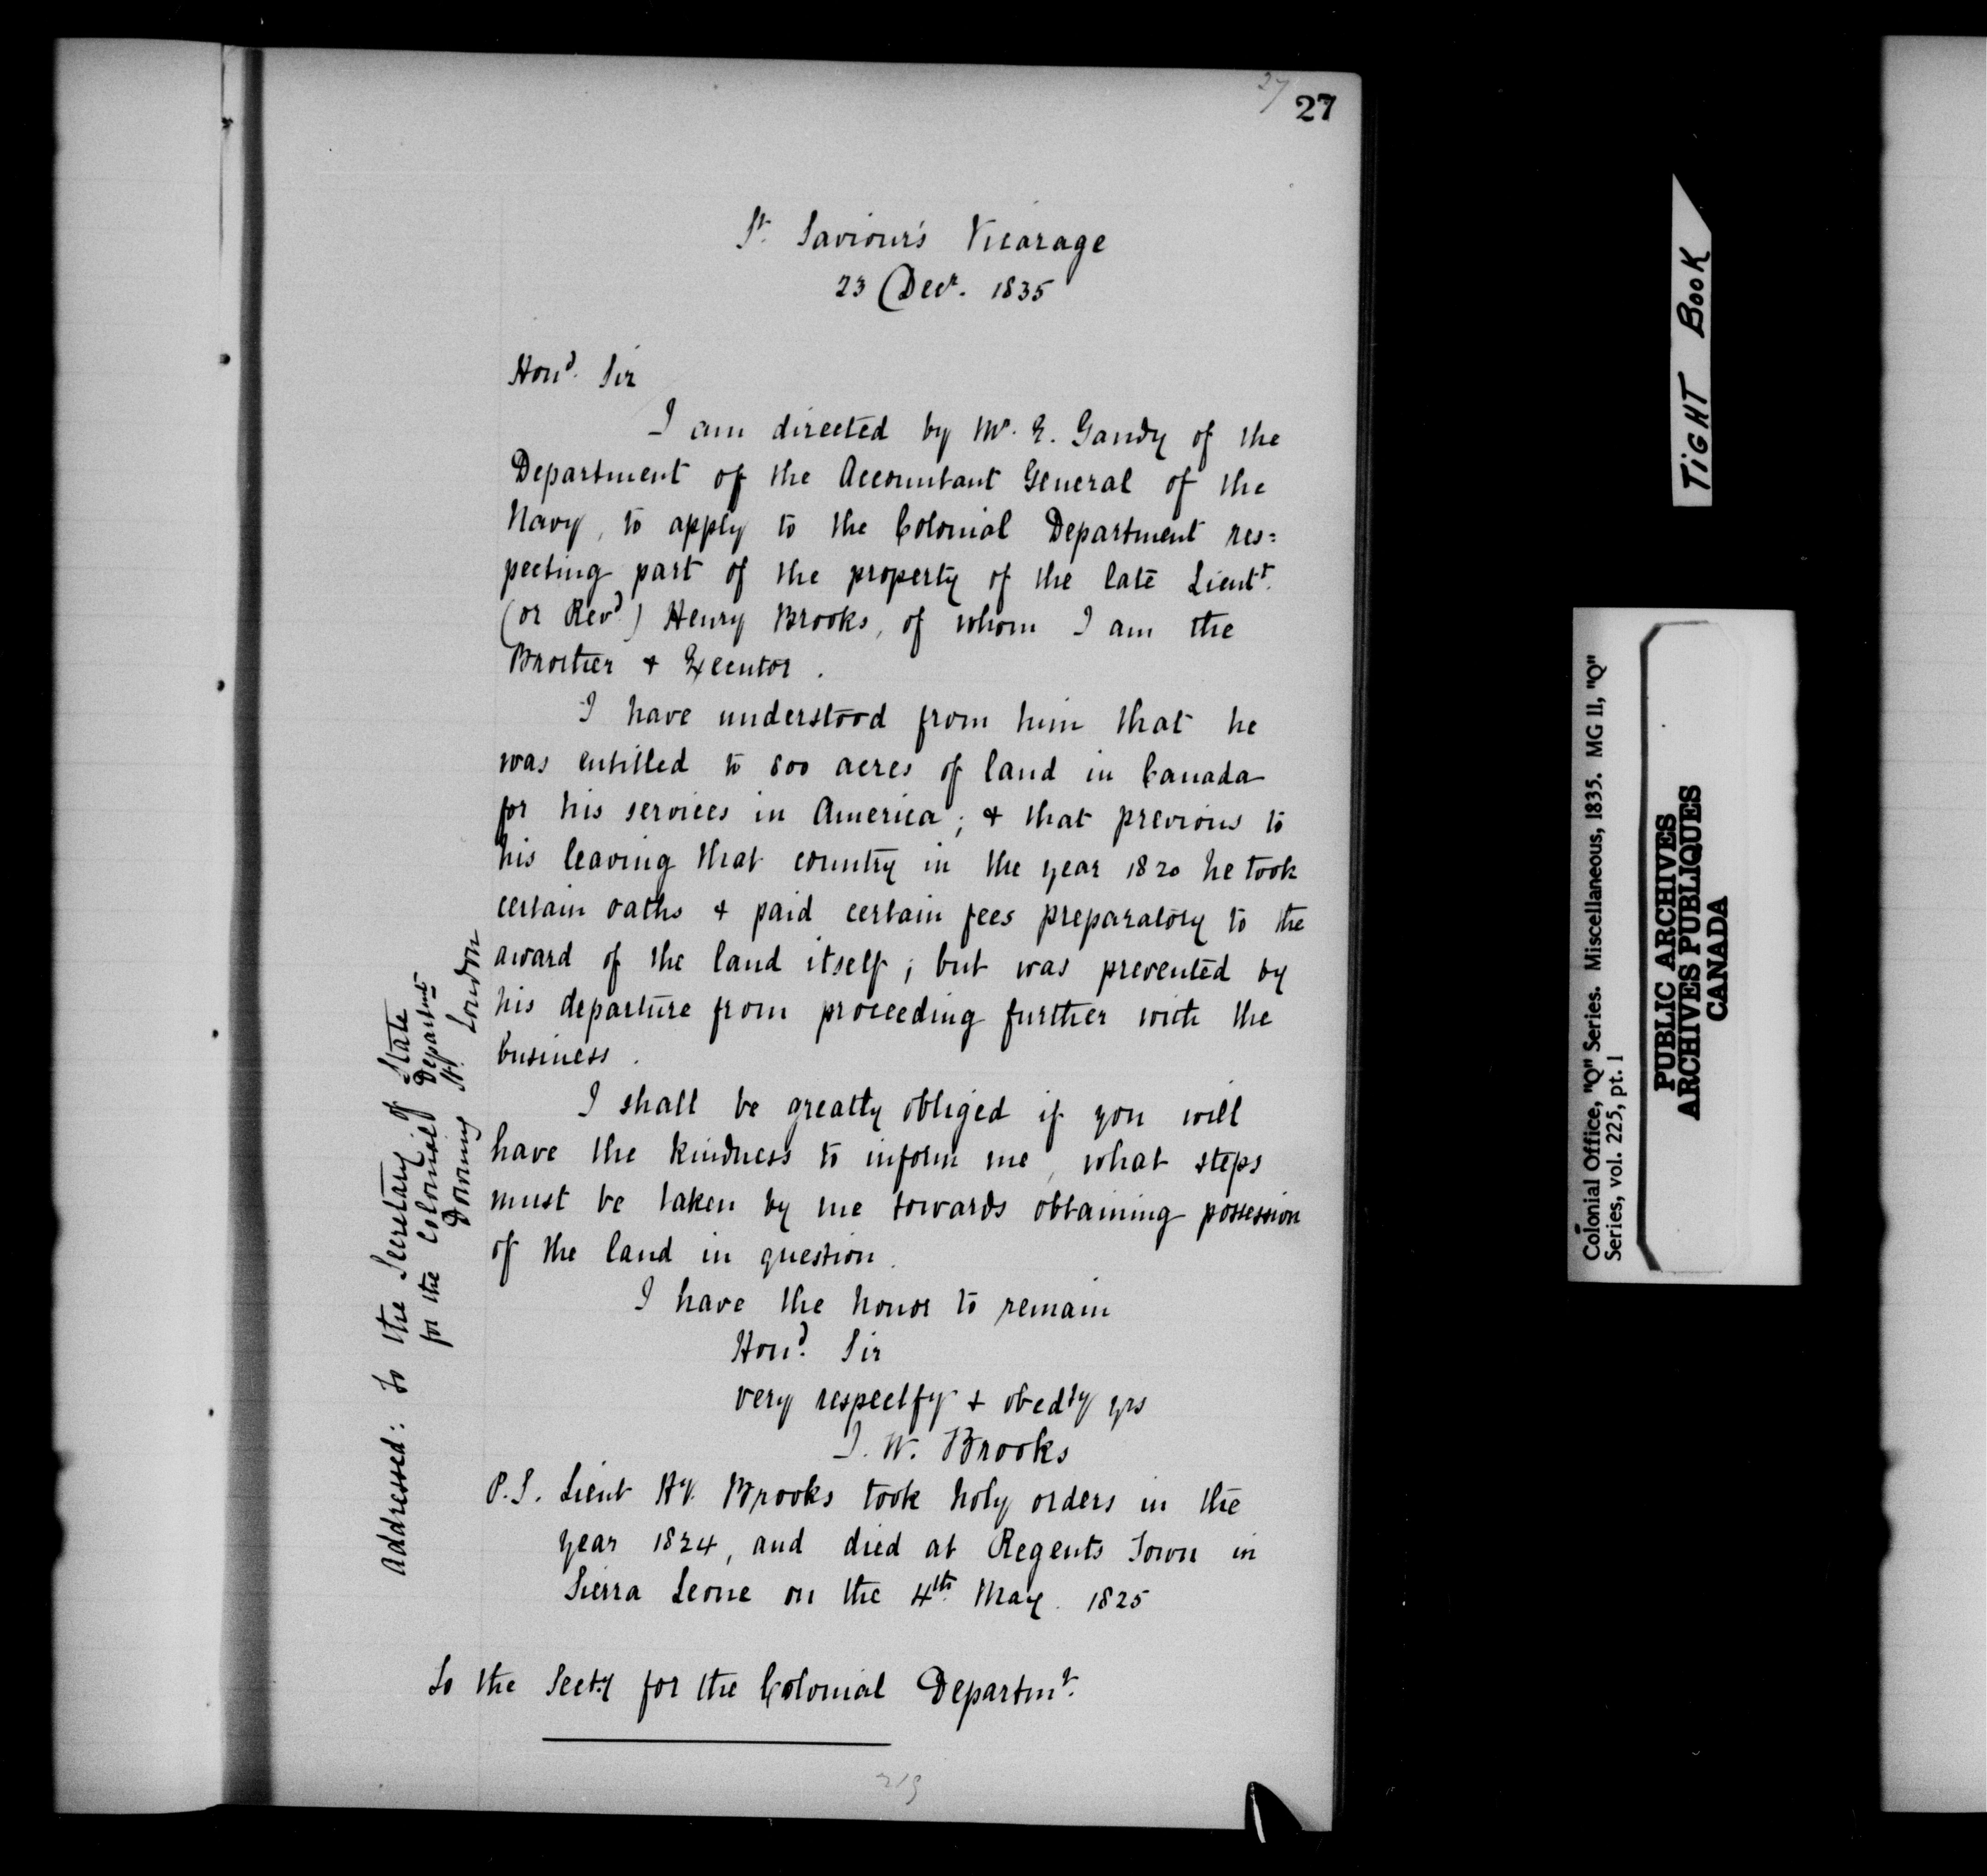 27
27
St. Saviour's Vicarage
23 Decr. 1835
Hond. Sir
I am directed by Mr. E. Gandy of the
Department of the Accountant General of the
Navy, to apply to the Colonial Department res=
pecting part of the property of the late Lieutt.
(or Revd.) Henry Brooks, of whom I am the
Brother & Executor.
I have understood from him that he
was entitled to 800 acres of land in Canada
for his services in America; & that previous to
his leaving that country in the year 1820 he took
certain oaths & paid certain fees preparatory to the
award of the land itself; but was prevented by
his departure from proceeding further with the
business.
I shall be greatly obliged if you will
have the kindness to inform me, what steps
must be taken by me towards obtaining possession
of the land in question.
I have the honor to remain
Hond. Sir
very respectfy & obedty yrs
J. W. Brooks
P.S. Lieut Hy. Brooks took holy orders in the
year 1824, and died at Regents Town in
Sierra Leone on the 4th. May. 1825
To the Secty for the Colonial Departmt.
Addressed: To the Secretary of State
for the Colonial Department
Downing St. London
219
TIGHT BOOK
Colonial Office, "Q" Series. Miscellaneous, 1835. MG 11, "Q"
Series, vol. 225, pt. 1
PUBLIC ARCHIVES
ARCHIVES PUBLIQUES
CANADA